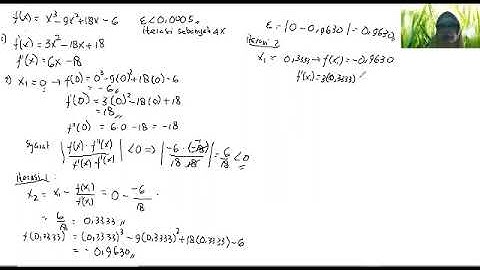 f(x) = x³ - 9x² + 18x - 6
ε < 0,0005
iterasi sebanyak 4x
1) f'(x) = 3x² - 18x + 18
f''(x) = 6x - 18
2) x₁ = 0 → f(0) = 0³ - 9(0)² + 18(0) - 6
= -6
f'(0) = 3(0)² - 18(0) + 18
= 18
f''(0) = 6·0 - 18 = -18
Syarat |f(x)·f''(x) / f'(x)·f'(x)| < 0 => |-6·(-18) / 18·18| = 6/18 < 0
iterasi 1
x₂ = x₁ - f(x₁)/f'(x₁) = 0 - -6/18
= 6/18 = 0,3333
f(0,3333) = (0,3333)³ - 9(0,3333)² + 18(0,3333) - 6
= -0,9630
ε = |0 - 0,9630| = 0,9630
iterasi 2
x₁ = 0,3333 → f(x) = -0,9630
f'(x) = 3(0,3333)